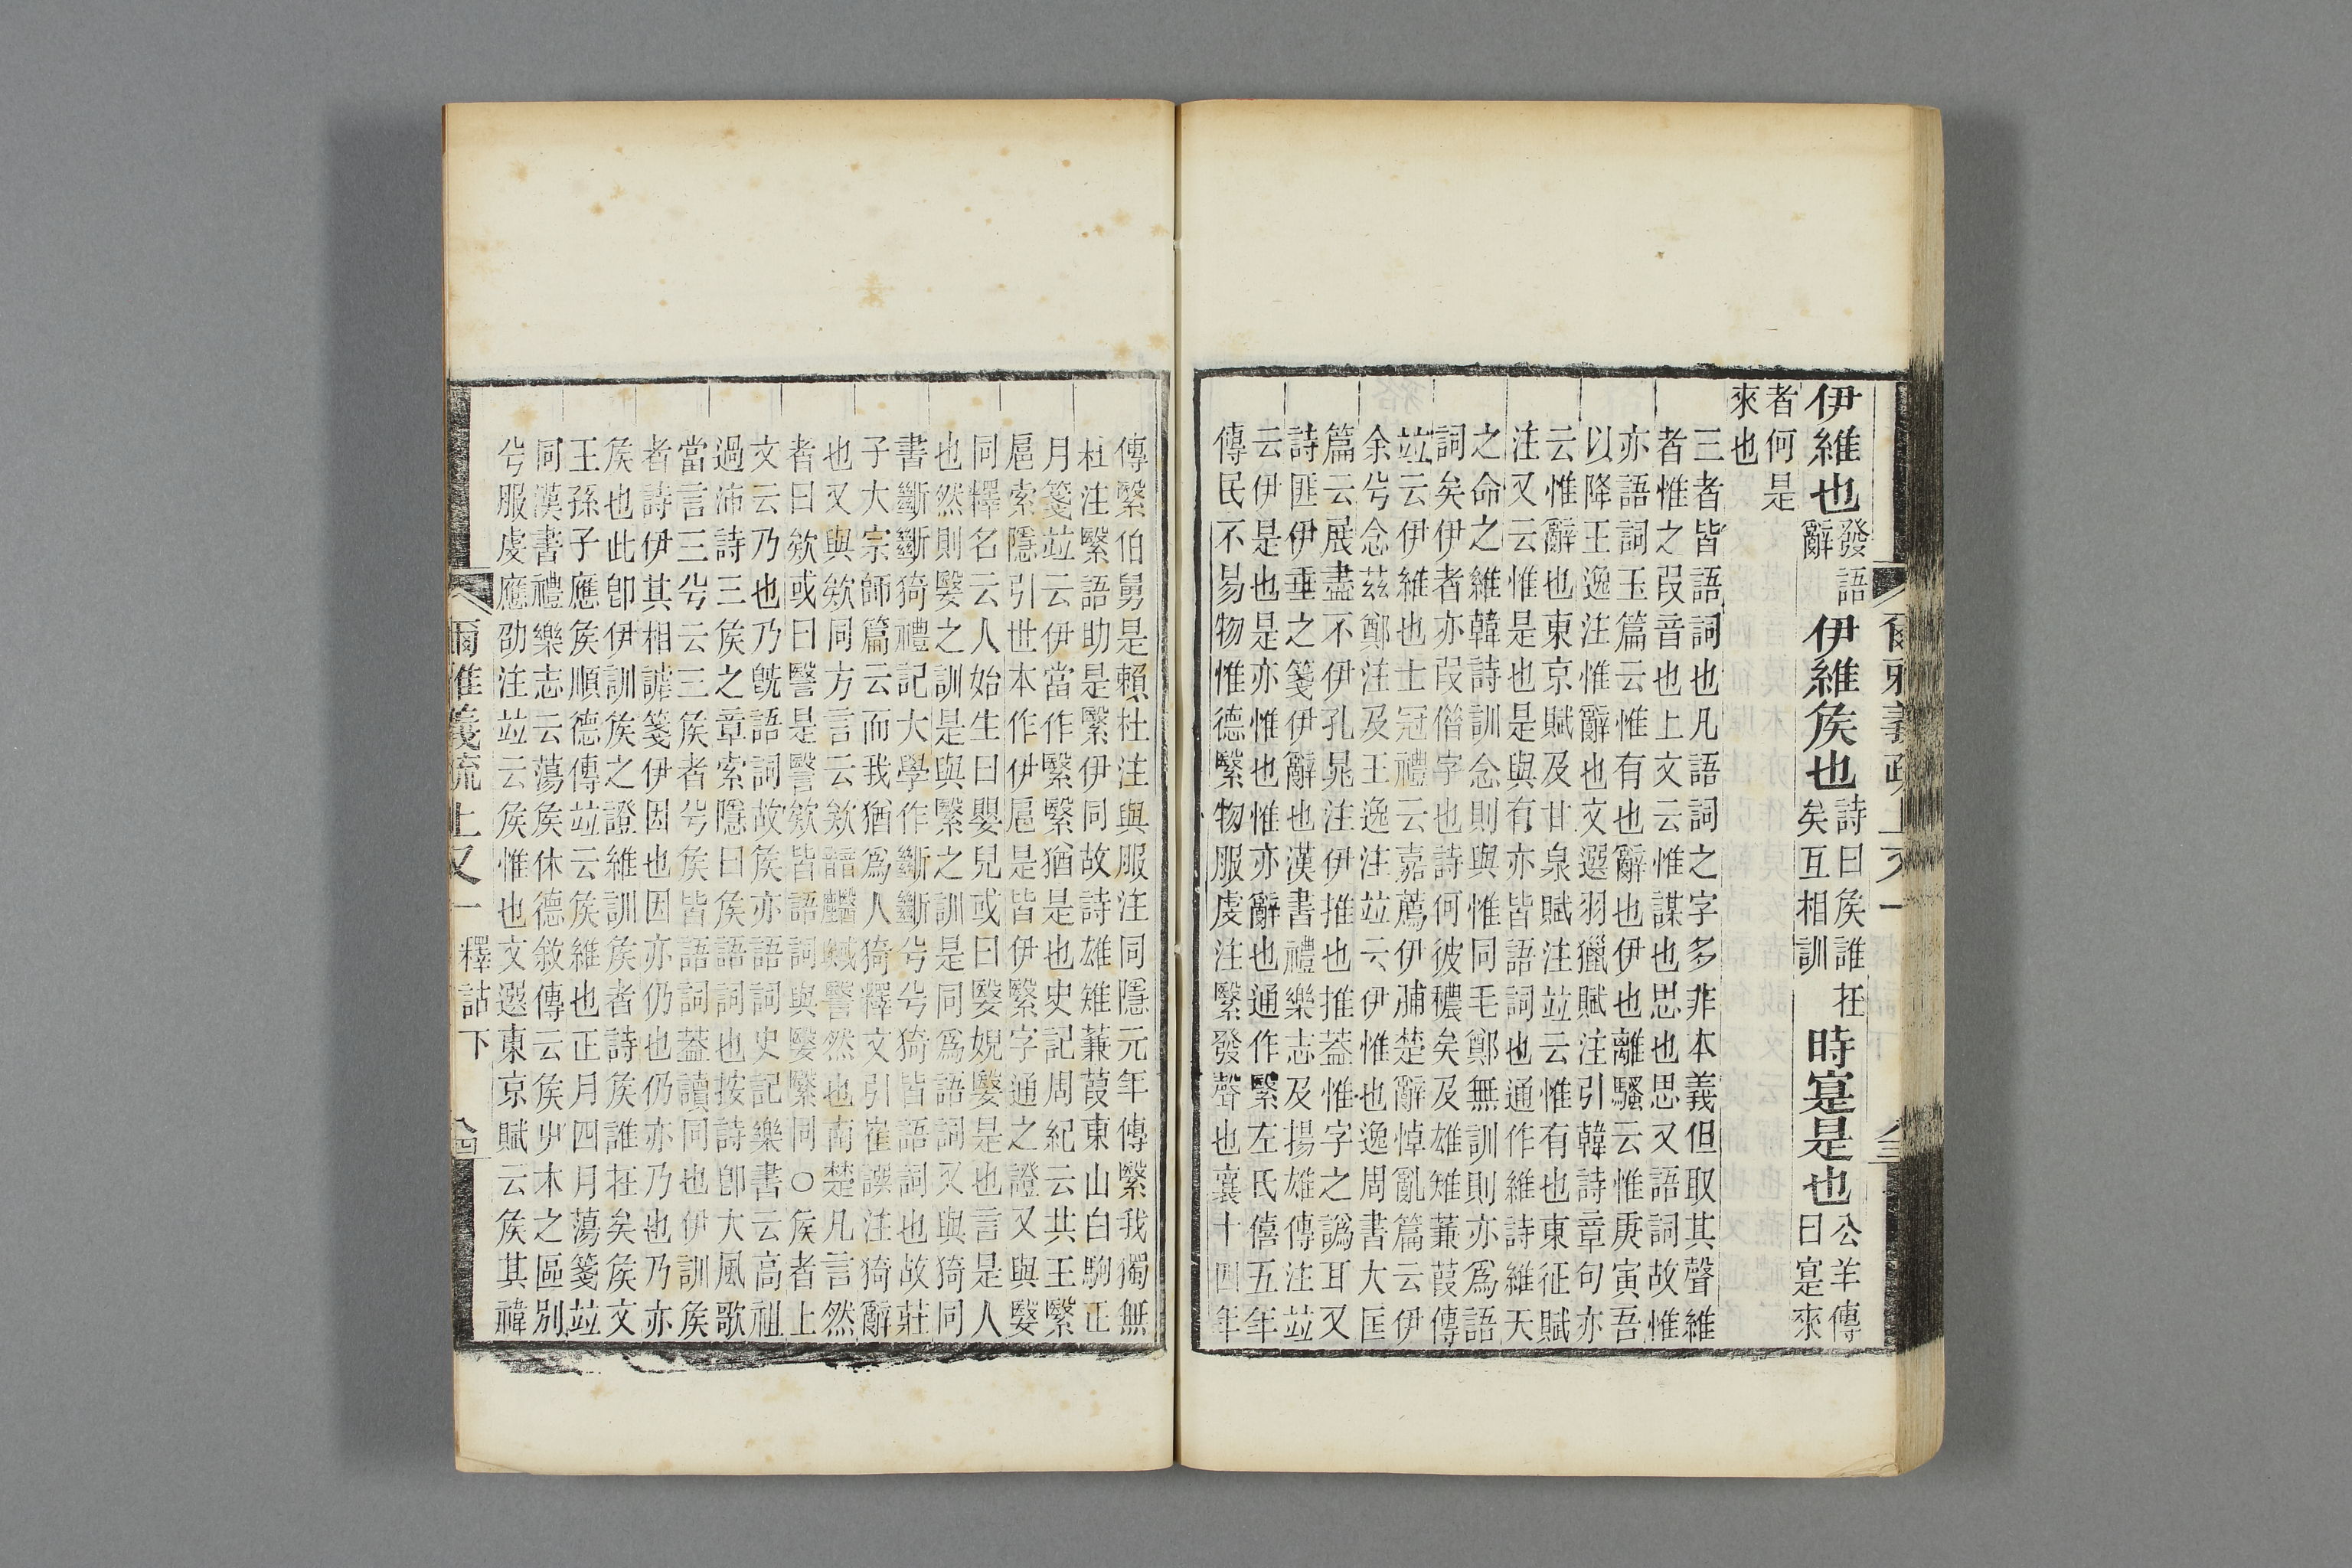 伊維也
發語
辭
伊維矦也
詩曰矦誰在
矣互相訓
時寔是也
公羊傳
曰寔來
者何是
來也
三者皆語詞也凡語詞之字多非本義但取其聲維
者惟之叚音也上文云惟謀也思也思又語詞故惟
亦語詞玉篇云惟有也辭也伊也離騷云惟庚寅吾
以降王逸注惟辭也文選羽獵賦注引韓詩章句亦
云惟辭也東京賦及甘泉賦注竝云惟有也東征賦
注又云惟是也是與有亦皆語詞也通作維詩維天
之命之維韓詩訓念則與惟同毛鄭無訓則亦爲語
詞矣伊者亦叚偕字也詩何彼穠矣及雄雉蒹葭傳
竝云伊維也士冠禮云嘉薦伊脯楚辭悼亂篇云伊
余兮念茲鄭注及王逸注竝云伊惟也逸周書大匡
篇云展盡不伊孔晁注伊推也推蓋惟字之譌耳又
詩匪伊垂之箋伊辭也漢書禮樂志及揚雄傳注竝
云伊是也是亦惟也惟亦辭也通作繄左氏僖五年
傳民不易物惟德繄物服虔注繄發聲也襄十四年
傳繄伯舅是賴杜注與服注同隱元年傳繄我獨無
杜注繄語助是繄伊同故詩雄雉蒹葭東山白駒正
月箋竝云伊當作繄繄猶是也史記周紀云共王繄
扈索隱引世本作伊扈是皆伊繄字通之證又與嫛
同釋名云人始生曰嬰兒或曰嫛婗嫛是也言是人
也然則嫛之訓是與繄之訓是同爲語詞又與猗同
書斷斷猗禮記大學作斷斷兮兮猗皆語詞也故莊
子大宗師篇云而我猶爲人猗釋文引崔譔注猗辭
也又與欸同方言云欸然也南楚凡言然
者曰欸或曰是欸皆語詞與嫛繄同○矦者上
文云乃也乃旣語詞故矦亦語詞史記樂書云高祖
過沛詩三矦之章索隱曰矦語詞也按詩卽大風歌
當言三兮云三矦者兮矦皆語詞蓋讀同也伊訓矦
者詩伊其相謔箋伊因也因亦仍也仍亦乃也乃亦
矦也此卽伊訓矦之證維訓矦者詩矦誰在矣矦文
王孫子應矦順德傳竝云矦維也正月四月蕩箋竝
同漢書禮樂志云蕩矦休德敘傳云矦屮木之區別
兮服虔應劭注竝云矦惟也文選東京賦云矦其禕
爾雅義疏上又一 釋詁下